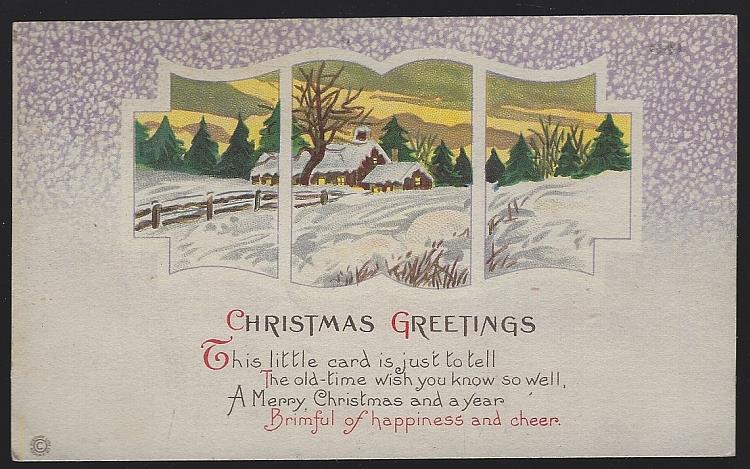 CHRISTMAS GREETINGS
This little card is just to tell
The old-time wish you know so well,
A Merry Christmas and a year
Brimful of happiness and cheer.
©